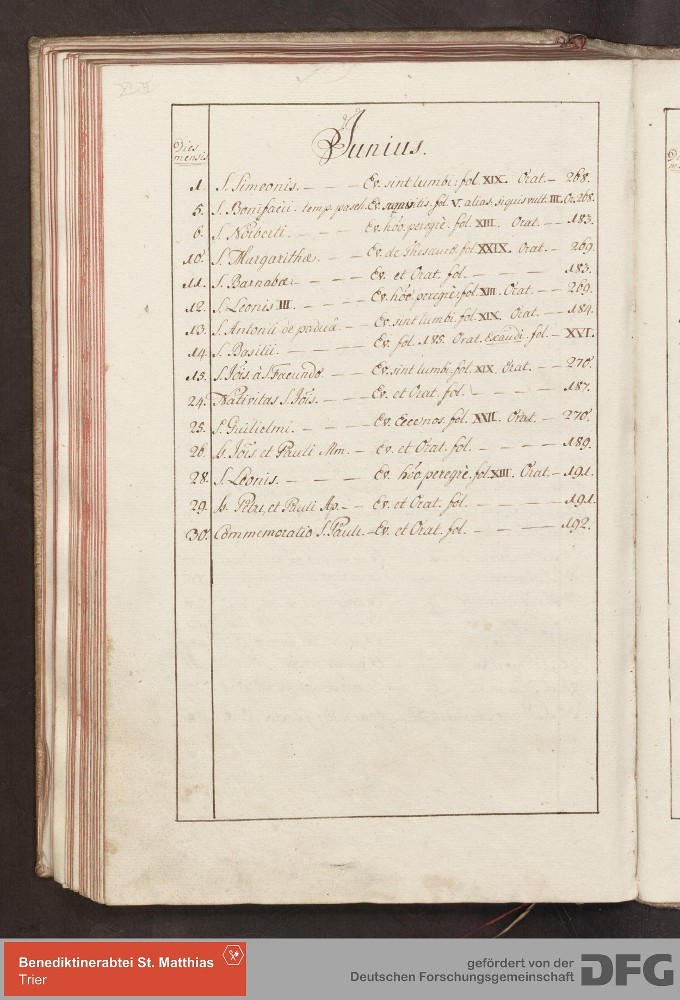 Junius.
Dies
mensis
1. S. Simeonis. — — — Ev. sint lumbi: fol. XIX. Orat. — 268.
5. S. Bonifacii. temp. pasch. Ev. si quis vitis. fol. V. alias. si quis vult. III. Or. 268.
6. S. Norberti. — — — Ev. hõo peregrè. fol. XIII. Orat. — — 183.
10. S. Margarithæ. — — Ev. de Thesauro. fol. XXIX. Orat. — 269.
11. S. Barnabæ. — — — Ev. et Orat. fol. — — — — 183.
12. S. Leonis III. — — — Ev. hõo peregrè: fol. XIII. Orat. — — 269.
13. S. Antonii de paduâ. — — Ev. sint lumbi. fol. XIX. Orat. — — 184.
14. S. Basilii. — — — — Ev. fol. 185. Orat. Exaudi. fol. — XVI.
15. S. Jõis. à S. Facundo. — — Ev. sint lumbi. fol. XIX. Orat. — — 270.
24. Nativitas S. Jõis. — — — Ev. et Orat. fol. — — — — 187.
25. S. Guilielmi. — — — — Ev. Ecce nos. fol. XVII. Orat. — — 270.
26. SS. Jõis. et Pauli Mm. — Ev. et Orat. fol. — — — — 189.
28. S. Leonis. — — — — Ev. hõo peregrè. fol. XIII. Orat. — 191.
29. SS. Petri, et Pauli Ap. — — Ev. et Orat. fol. — — — — 191.
30. Commemoratio S. Pauli. — Ev. et Orat. fol. — — — — 192.
Benediktinerabtei St. Matthias
Trier
gefördert von der
Deutschen Forschungsgemeinschaft
DFG